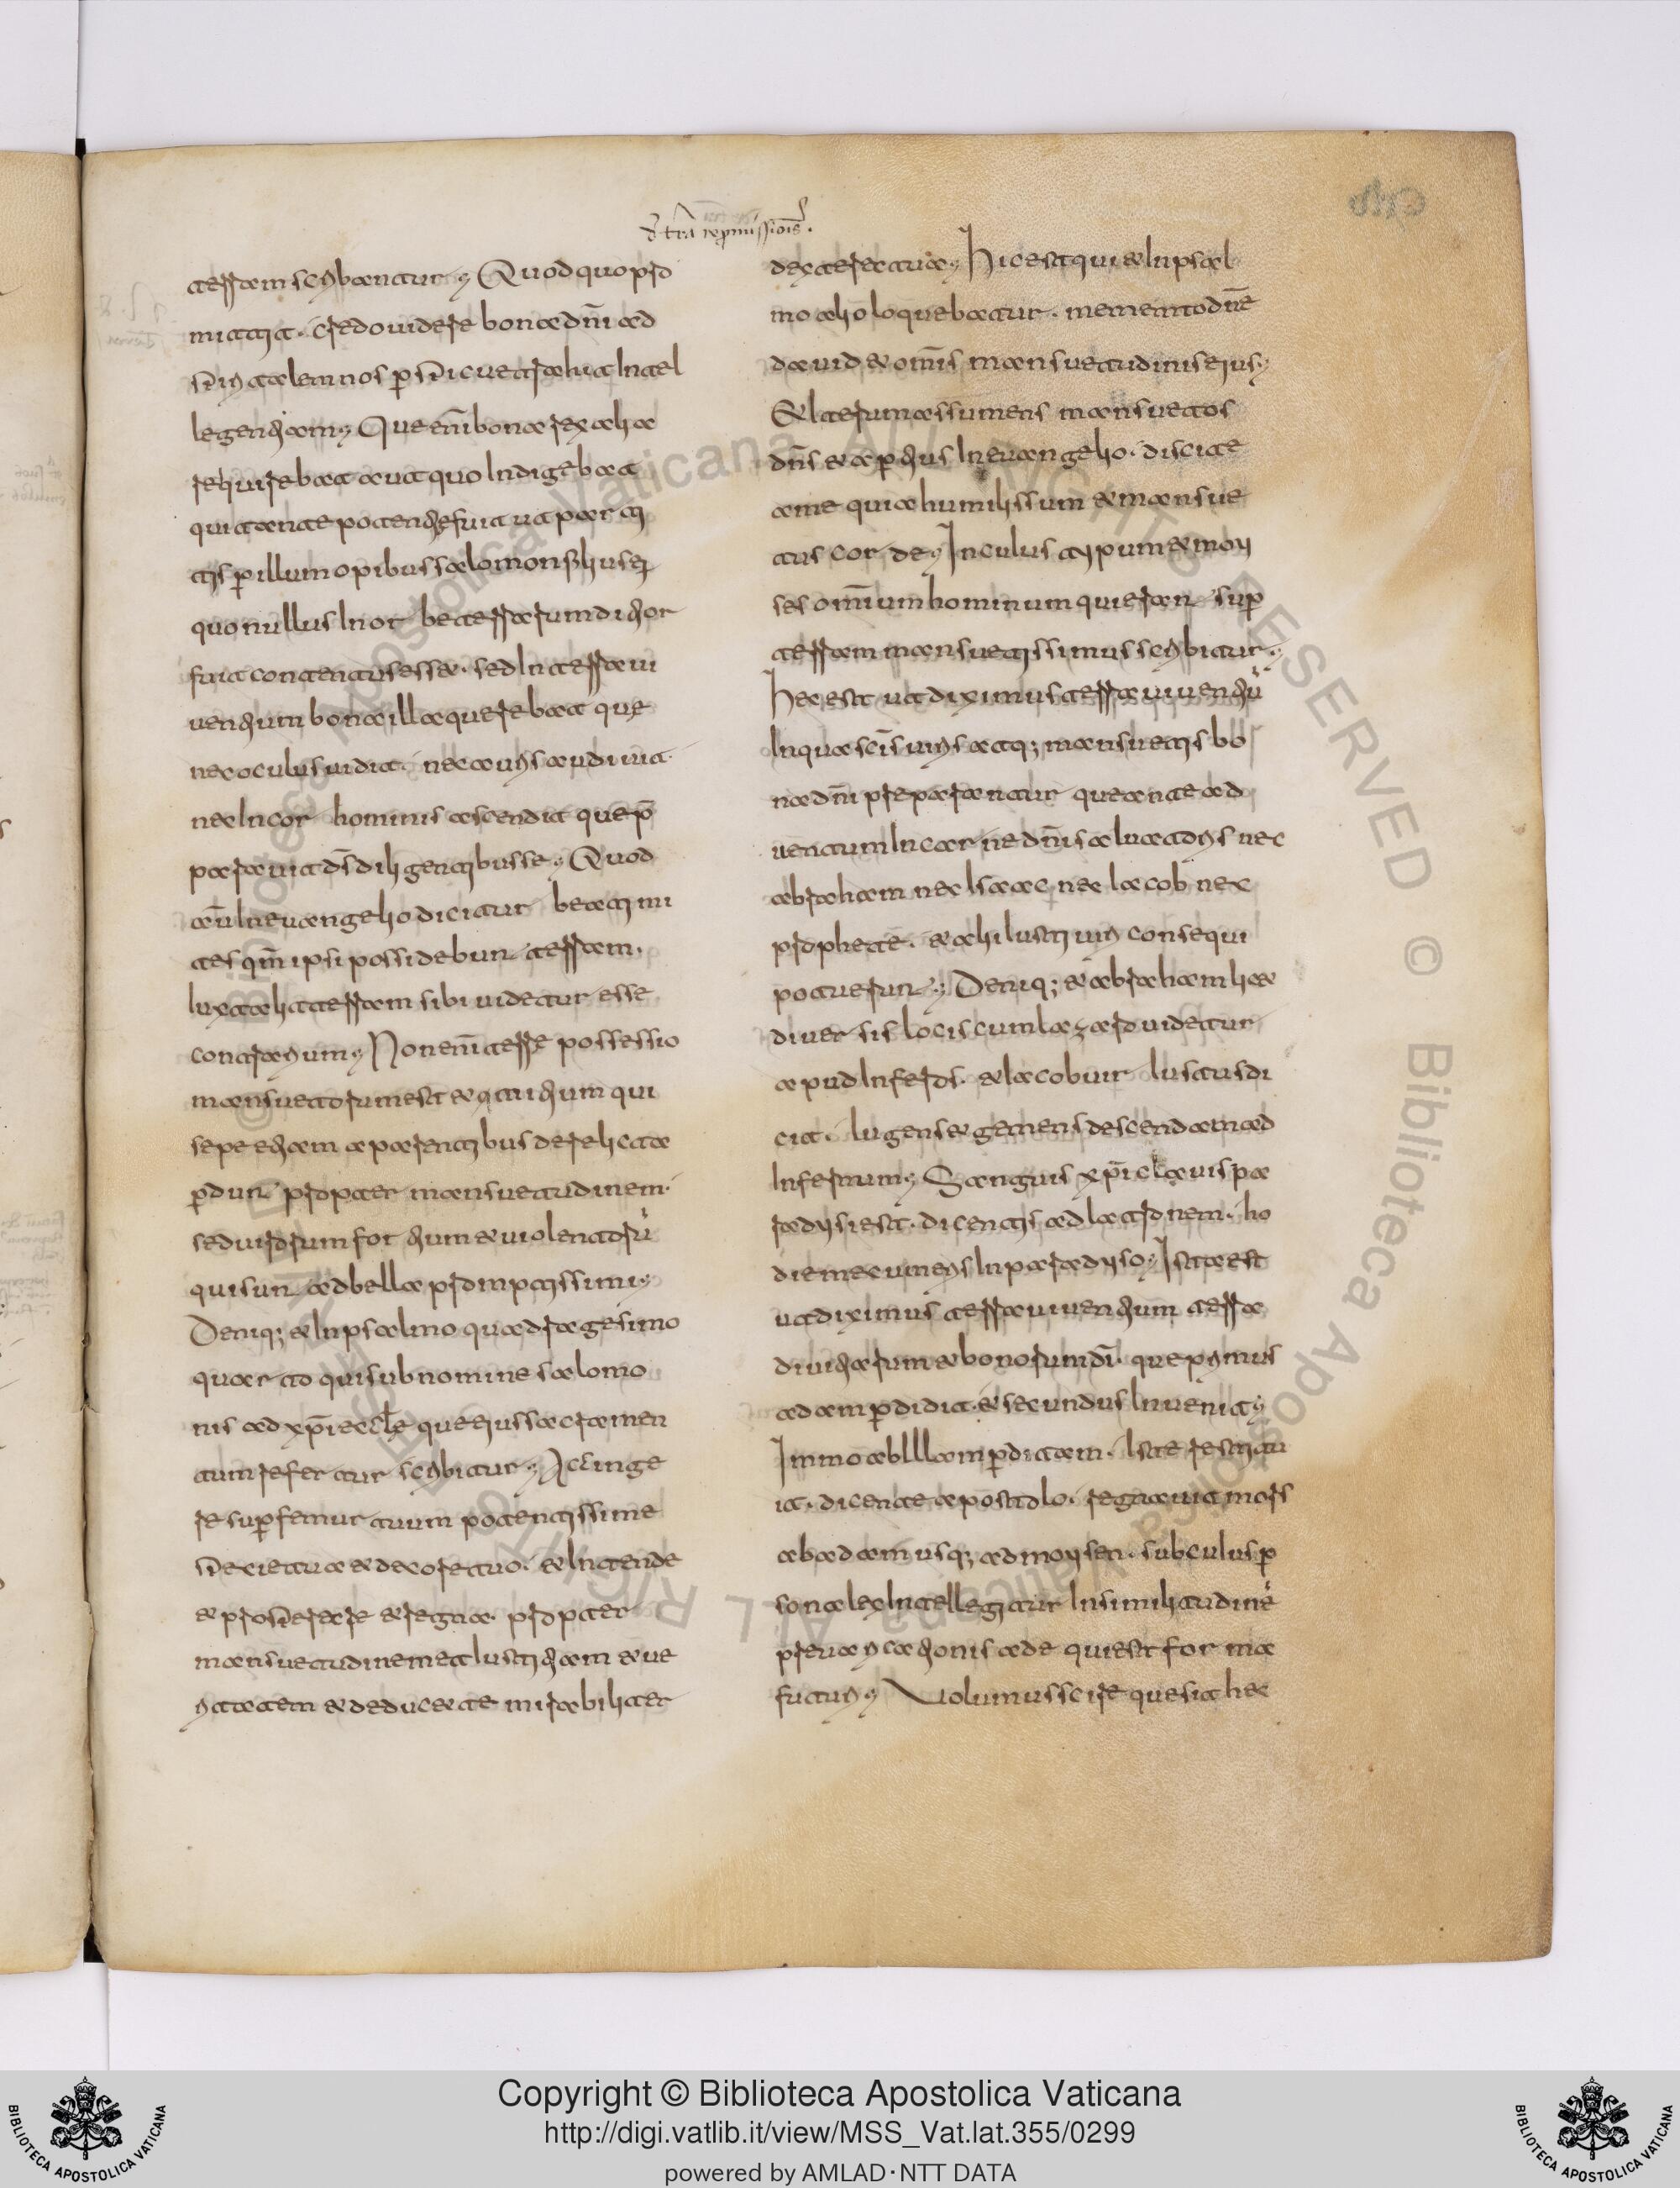 d̄ t̄ra repmissiōis.
terram scribantur; Quod quo pro
mittit. credo videre bona dn̄i ad
sr̄iptalem nos p sr̄icvetrahit Intel
legentiam; Que eni͞ bona rex ahə
requirebat aut quo Indigebat
qui tante potentie fuit ut parti
tis p illum opibus salomon filius eiꝰ
quo nullus In orbe terrarum ditior
fuit contentus esset. sed In terra vi
ventium bona illa querebat que
nec oculus vidit. nec auris audivit
nec In cor hominis ascendit que p̄
paravit ds̄ diligentibus se; Quod
aūt In evangelio dicitur beati mi
tes qm̄ ipsi possidebunt terram.
Iuxta hanc terram sibi videtur esse
contrarium; Non eni͞ terre possessio
mansuetorum est et quietium qui
sepe etiam a parentibus derelicta
pdunt propter mansuetudinem.
sed virorum fortium et violentorū
qui sunt ad bella promptissimi;
Deniq; et In psalmo quadragesimo
quarto qui sub nomine salomo
nis ad xp̄i eccl̄e que eius sacramen
tum refertur scribitur; Accinge
re sup femur tuum potentissime
specie tua et decore tuo. et Intende
et prospere procede et regna. propter
mansuetudinem et Iustitiam et ve
ritatem et deducet te mirabiliter
dextera tua; Hic est qui et In psal
mo alio loquebatur. memento dn̄e
david et om̄is mansuetudinis eius;
Et Iterum assumens mansuetos
dn̄s et aptius In evangelio. discite
a me quia humilis sum et mansue
tus corde; In cuius typum et moy
ses omīum hominum qui erant sup
terram mansuetissimus scribitur;
Hec est ut diximus terra viventiū
In qua scīs viris atq; mansuetis bo
na dn̄i preparantur que ante ad
ventum In carne dn̄i salvatoris nec
abraham nec Isaac, nec Iacob nec
prophete. et alii Iusti viri consequi
potuerunt; Deniq; et abraham licet
diversis locis cum lazaro videtur
apud Inferos. et Iacob vir Iustus di
cit. lugens et gemens descendam ad
Infernum; Sanguis xp̄i clavis pa
radysi est. dicentis ad latronem. ho
die mecum eris In paradyso; Ista est
ut diximus terra viventium terra
divitiarum et bonorum dī. que primus
adam pdidit. et secundus Invenit;
Immo ab Illo am pditam. Iste restitu
it. dicente apostolo. regnavit mors
ab adam usq; ad moysen. sub cuius p
sona lex Intellegitur In similitudinē
prevaricationis ade qui est forma
futuri; Volumus scire que sit hec
Copyright © Biblioteca Apostolica Vaticana
http://digi.vatlib.it/view/MSS_Vat.lat.355/0299
powered by AMLAD·NTT DATA
BIBLIOTECA APOSTOLICA VATICANA
BIBLIOTECA APOSTOLICA VATICANA